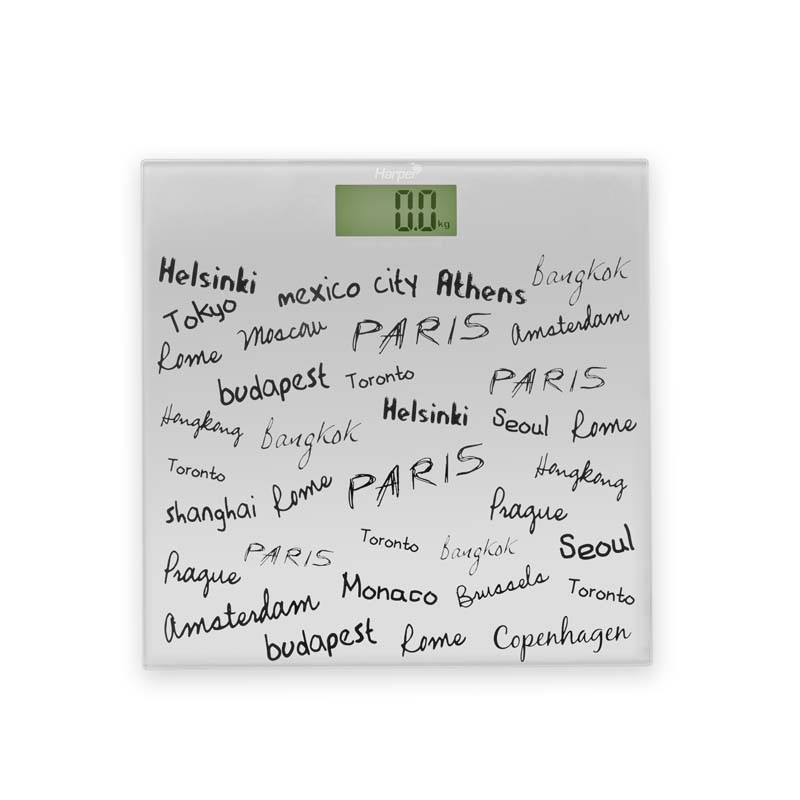 Harper
0.0 kg
Helsinki mexico city Athens Bangkok
Tokyo Moscow PARIS Amsterdam
Rome
budapest Toronto PARIS
Hongkong Bangkok Helsinki Seoul Rome
Toronto PARIS Hongkong
shanghai Rome Prague
PARIS Toronto Bangkok Seoul
Prague Monaco Brussels Toronto
Amsterdam budapest Rome Copenhagen